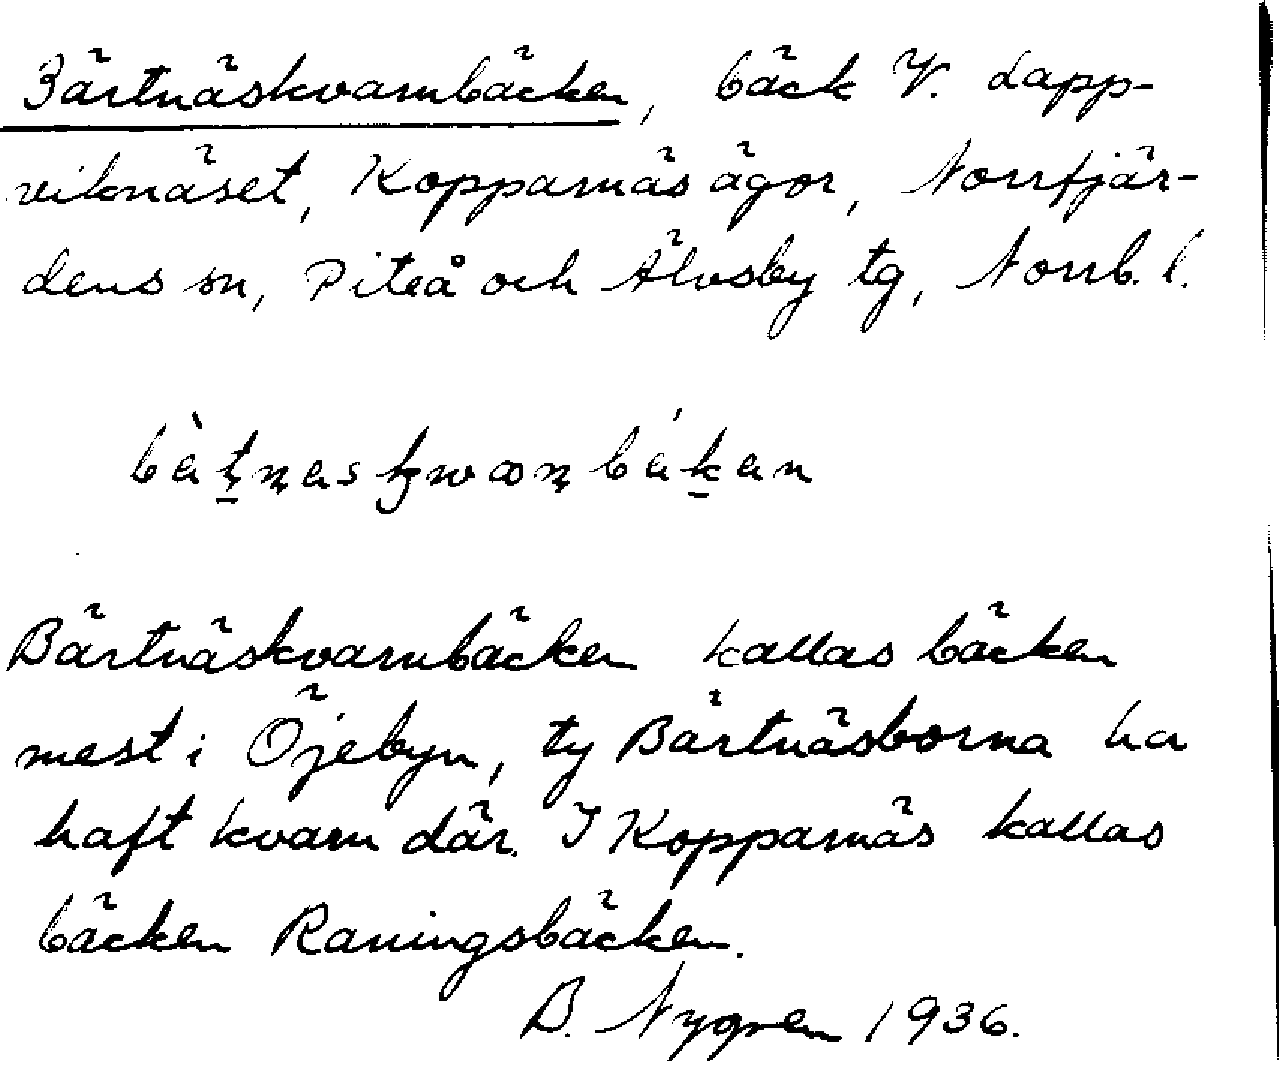 Bärtnäskvarnbäcken, bäck V. Lapp-
viknäset, Kopparnäs ägor, Norrfjär-
dens sn, Piteå och Älvsby tg, Norrb. l.
Bärtnäskvarnbäcken kallas bäcken
mest i Öjebyn, ty Bärtnäsborna ha
haft kvarn där. I Kopparnäs kallas
bäcken Raningsbäcken.
B. Nygren 1936.